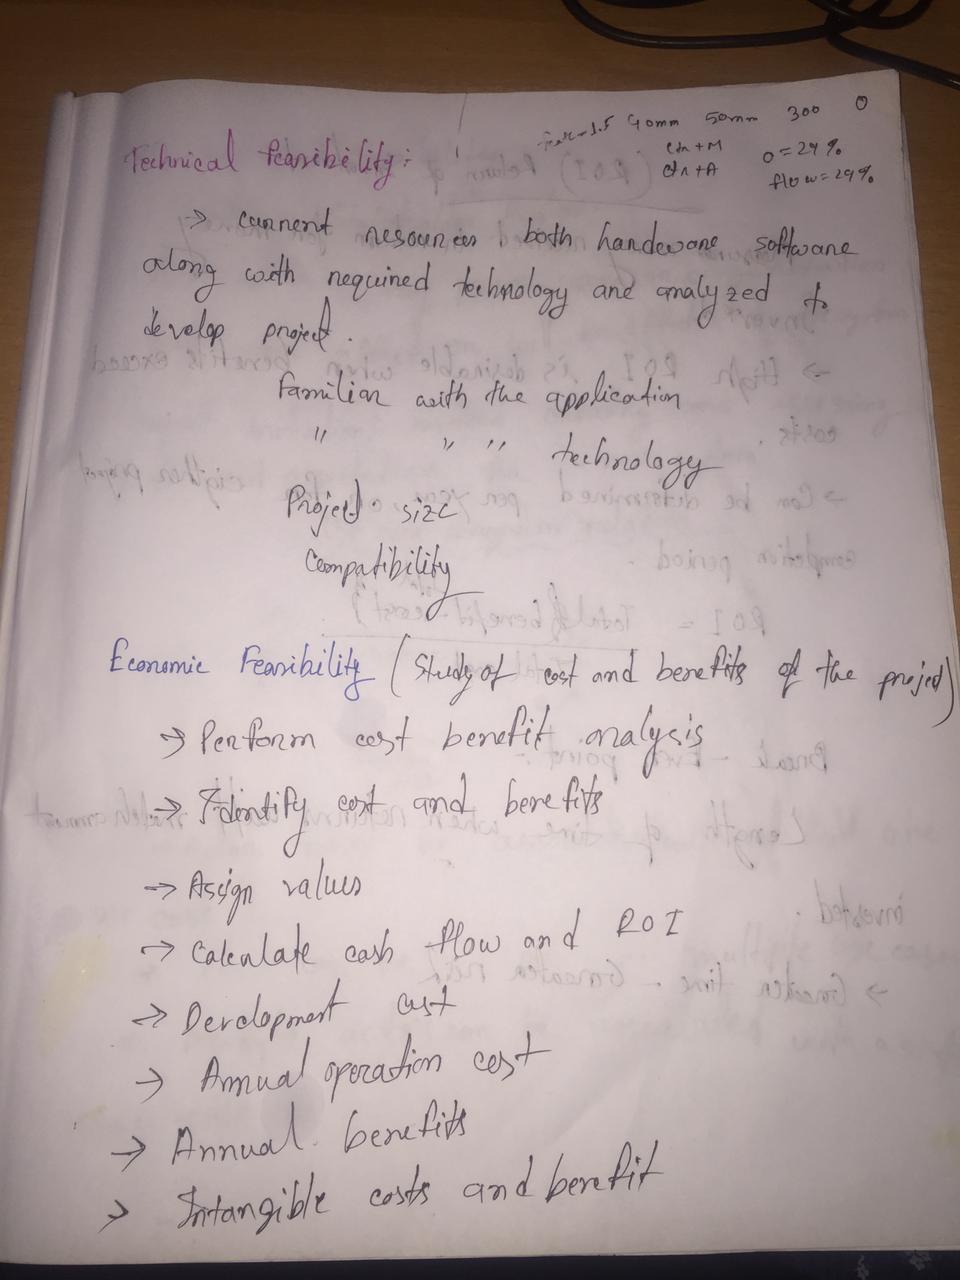 1.5 40mm 50mm 300 0
ctrl + M 0 = 24%
ctrl + A flow = 29%
Technical feasibility:
→ current resources both hardware software
along with required technology and analyzed to
develop project.
Familiar with the application
" " " technology
Project size
Compatibility
Economic Feasibility (Study of cost and benefits of the project)
→ Perform cost benefit analysis
→ Identify cost and benefits
→ Assign values
→ Calculate cash flow and ROI
→ Development cost
→ Annual operation cost
→ Annual benefits
→ Intangible costs and benefit